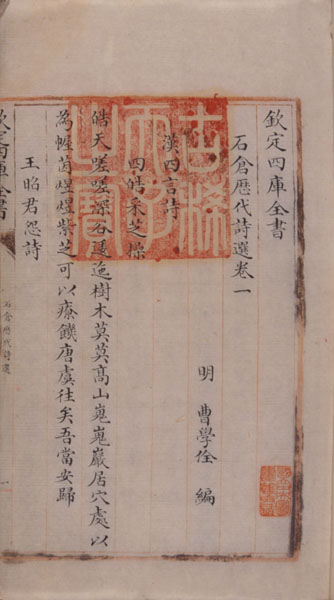 欽定四庫全書
石倉歴代詩選卷一
明 曹學佺 編
漢四言詩
四皓采芝操
皓天嗟嗟深谷逶迤樹木莫莫髙山嵬嵬巖居穴處以
為幄茵煜煜紫芝可以療饑唐虞往矣吾當安歸
王昭君怨詩
欽定四庫全書
石倉歴代詩選
古稀天子之寶